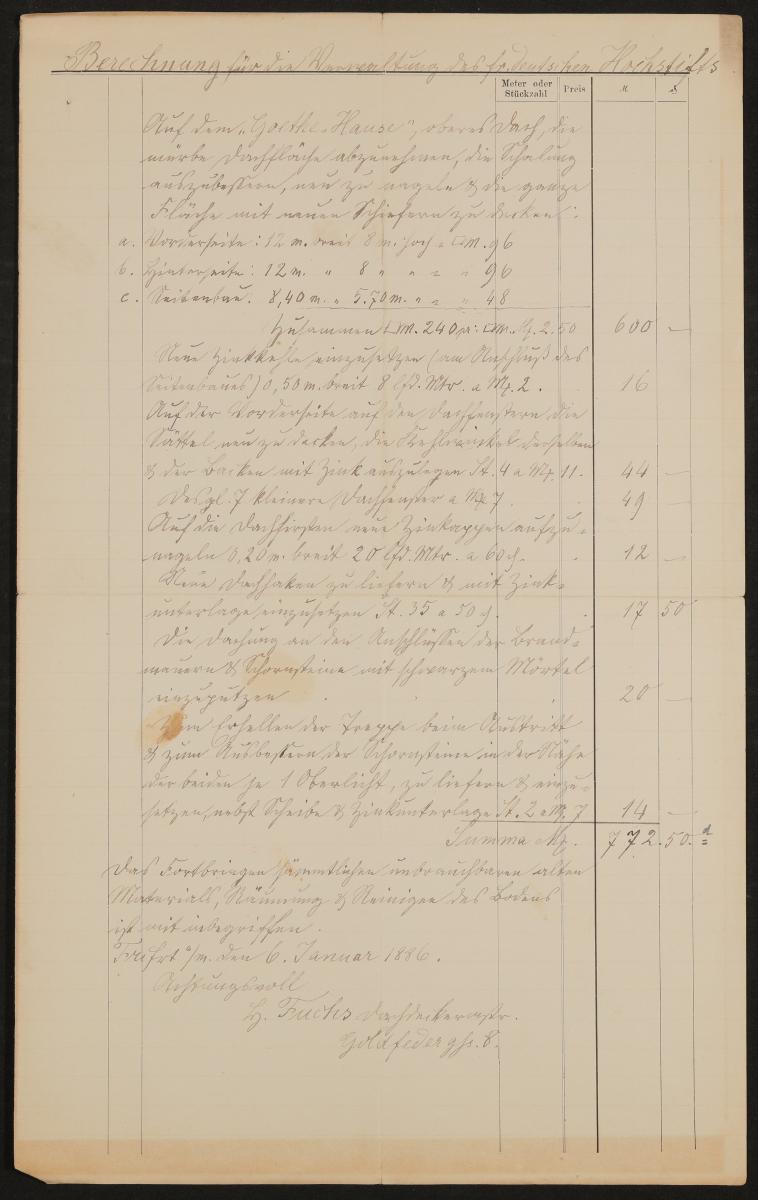 Berechnung für die Verwaltung des fr. deutschen Hochstifts
Meter oder Stückzahl Preis M ₰
Auf dem „Goethe-Hause", oberes Dach, die
mürbe Dachfläche abzunehmen, die Schalung
auszubessern, neu zu nageln & die ganze
Fläche mit neuen Schiefern zu decken:
a. Vorderseite: 12 m. breit 8 m. hoch = □M. 96
b. Hinterseite: 12 m. " 8 " " = " 96
c. Seitenbau. 8,40 m. " 5.70 m. " = " 48
Zusammen □M. 240 pr: □M. M. 2.50 600 —
Neue Zinkkehle einzusetzen (am Anschluß des
Seitenbaues) 0,50 m. breit 8 lfd. Mtr. a M. 2. 16
Auf der Vorderseite auf den Dachfenstern die
Sättel neu zu decken, die Kehlwinkel derselben
& der Backen mit Zink auszulegen St. 4 a M. 11. 44 —
Desgl. 7 kleinere Dachfenster a M. 7 49 —
Auf die Dachfirsten neue Zinkappen aufzu=
nageln 0,20 m. breit 20 lfd. Mtr. a 60 ₰. 12 —
Neue Dachhaken zu liefern & mit Zink=
unterlage einzusetzen St. 35 a 50 ₰. 17 50
Die Dachung an den Anschlüssen der Brand=
mauern & Schornsteine mit schwarzem Mörtel
einzuputzen 20 —
Zum Erhellen der Treppe beim Austritt
& zum Ausbessern der Schornsteine in der Nähe
der beiden je 1 Oberlicht, zu liefern & einzu=
setzen, nebst Scheibe & Zinkunterlage St. 2 a M. 7 14 —
Summa M. 772.50.
Das Fortbringen sämmtlichen unbrauchbaren alten
Materials, Räumung & Reinigen des Bodens
ist mit inbegriffen.
Frkfrt a/m. den 6. Januar 1886.
Achtungsvoll
H. Fuchs Dachdeckermstr.
Goldfedergs. 8.